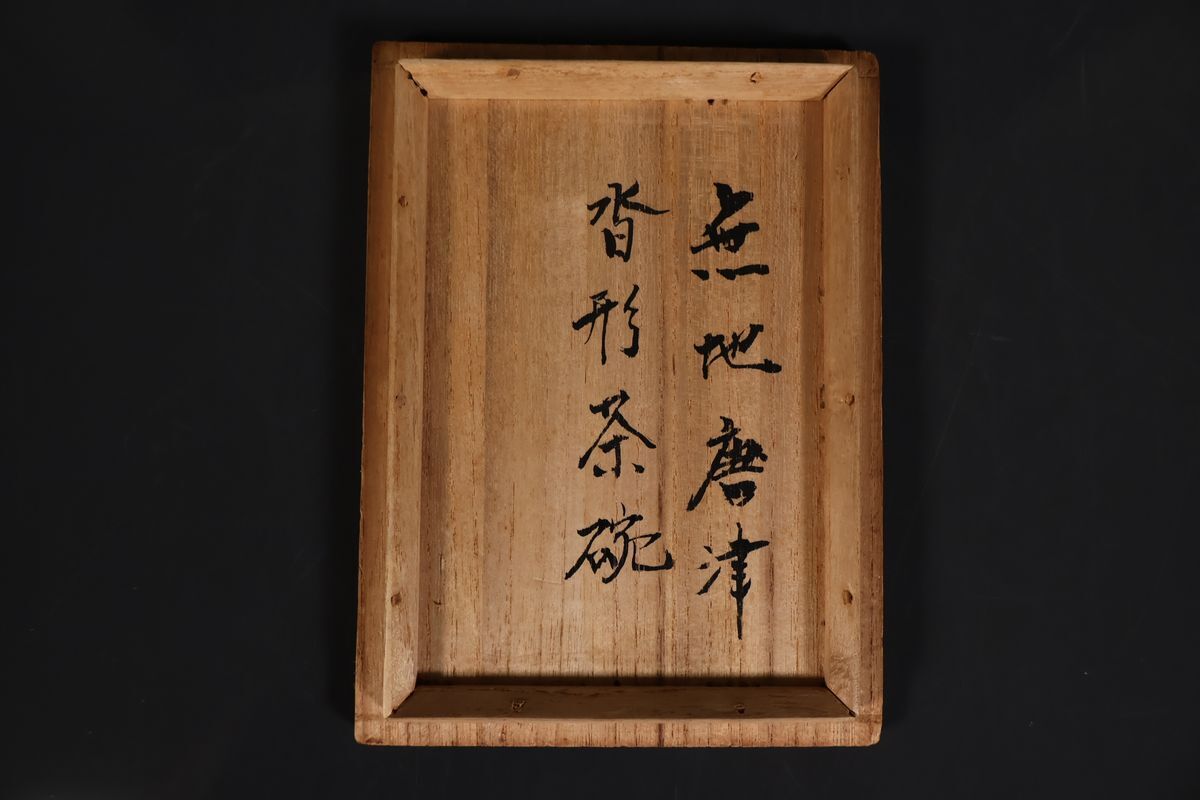 無地唐津
沓形茶碗